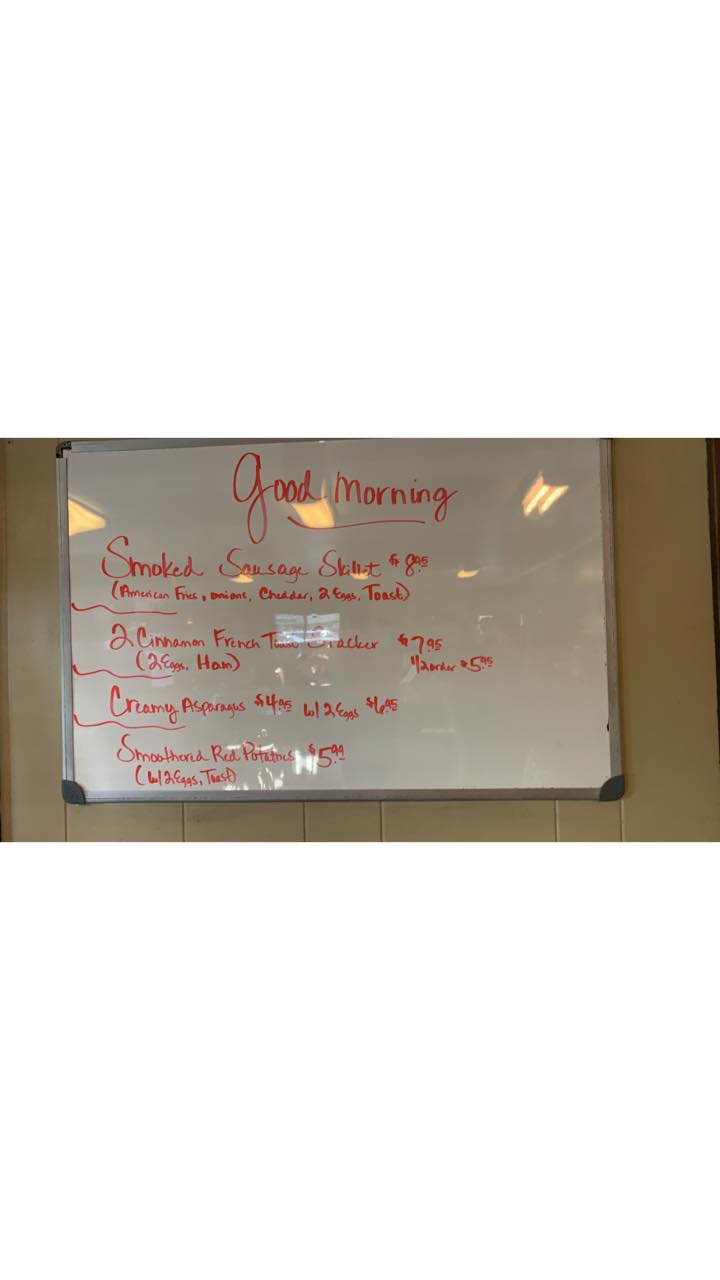 Good Morning
Smoked Sausage Skillet $8.95
(American Fries, onions, Cheddar, 2 Eggs, Toast)
2 Cinnamon French Toast Stacker $7.95
(2 Eggs, Ham) 1/2 order $5.95
Creamy Asparagus $4.95 w/ 2 Eggs $6.95
Smoothered Red Potatoes $5.99
(w/ 2 Eggs, Toast)